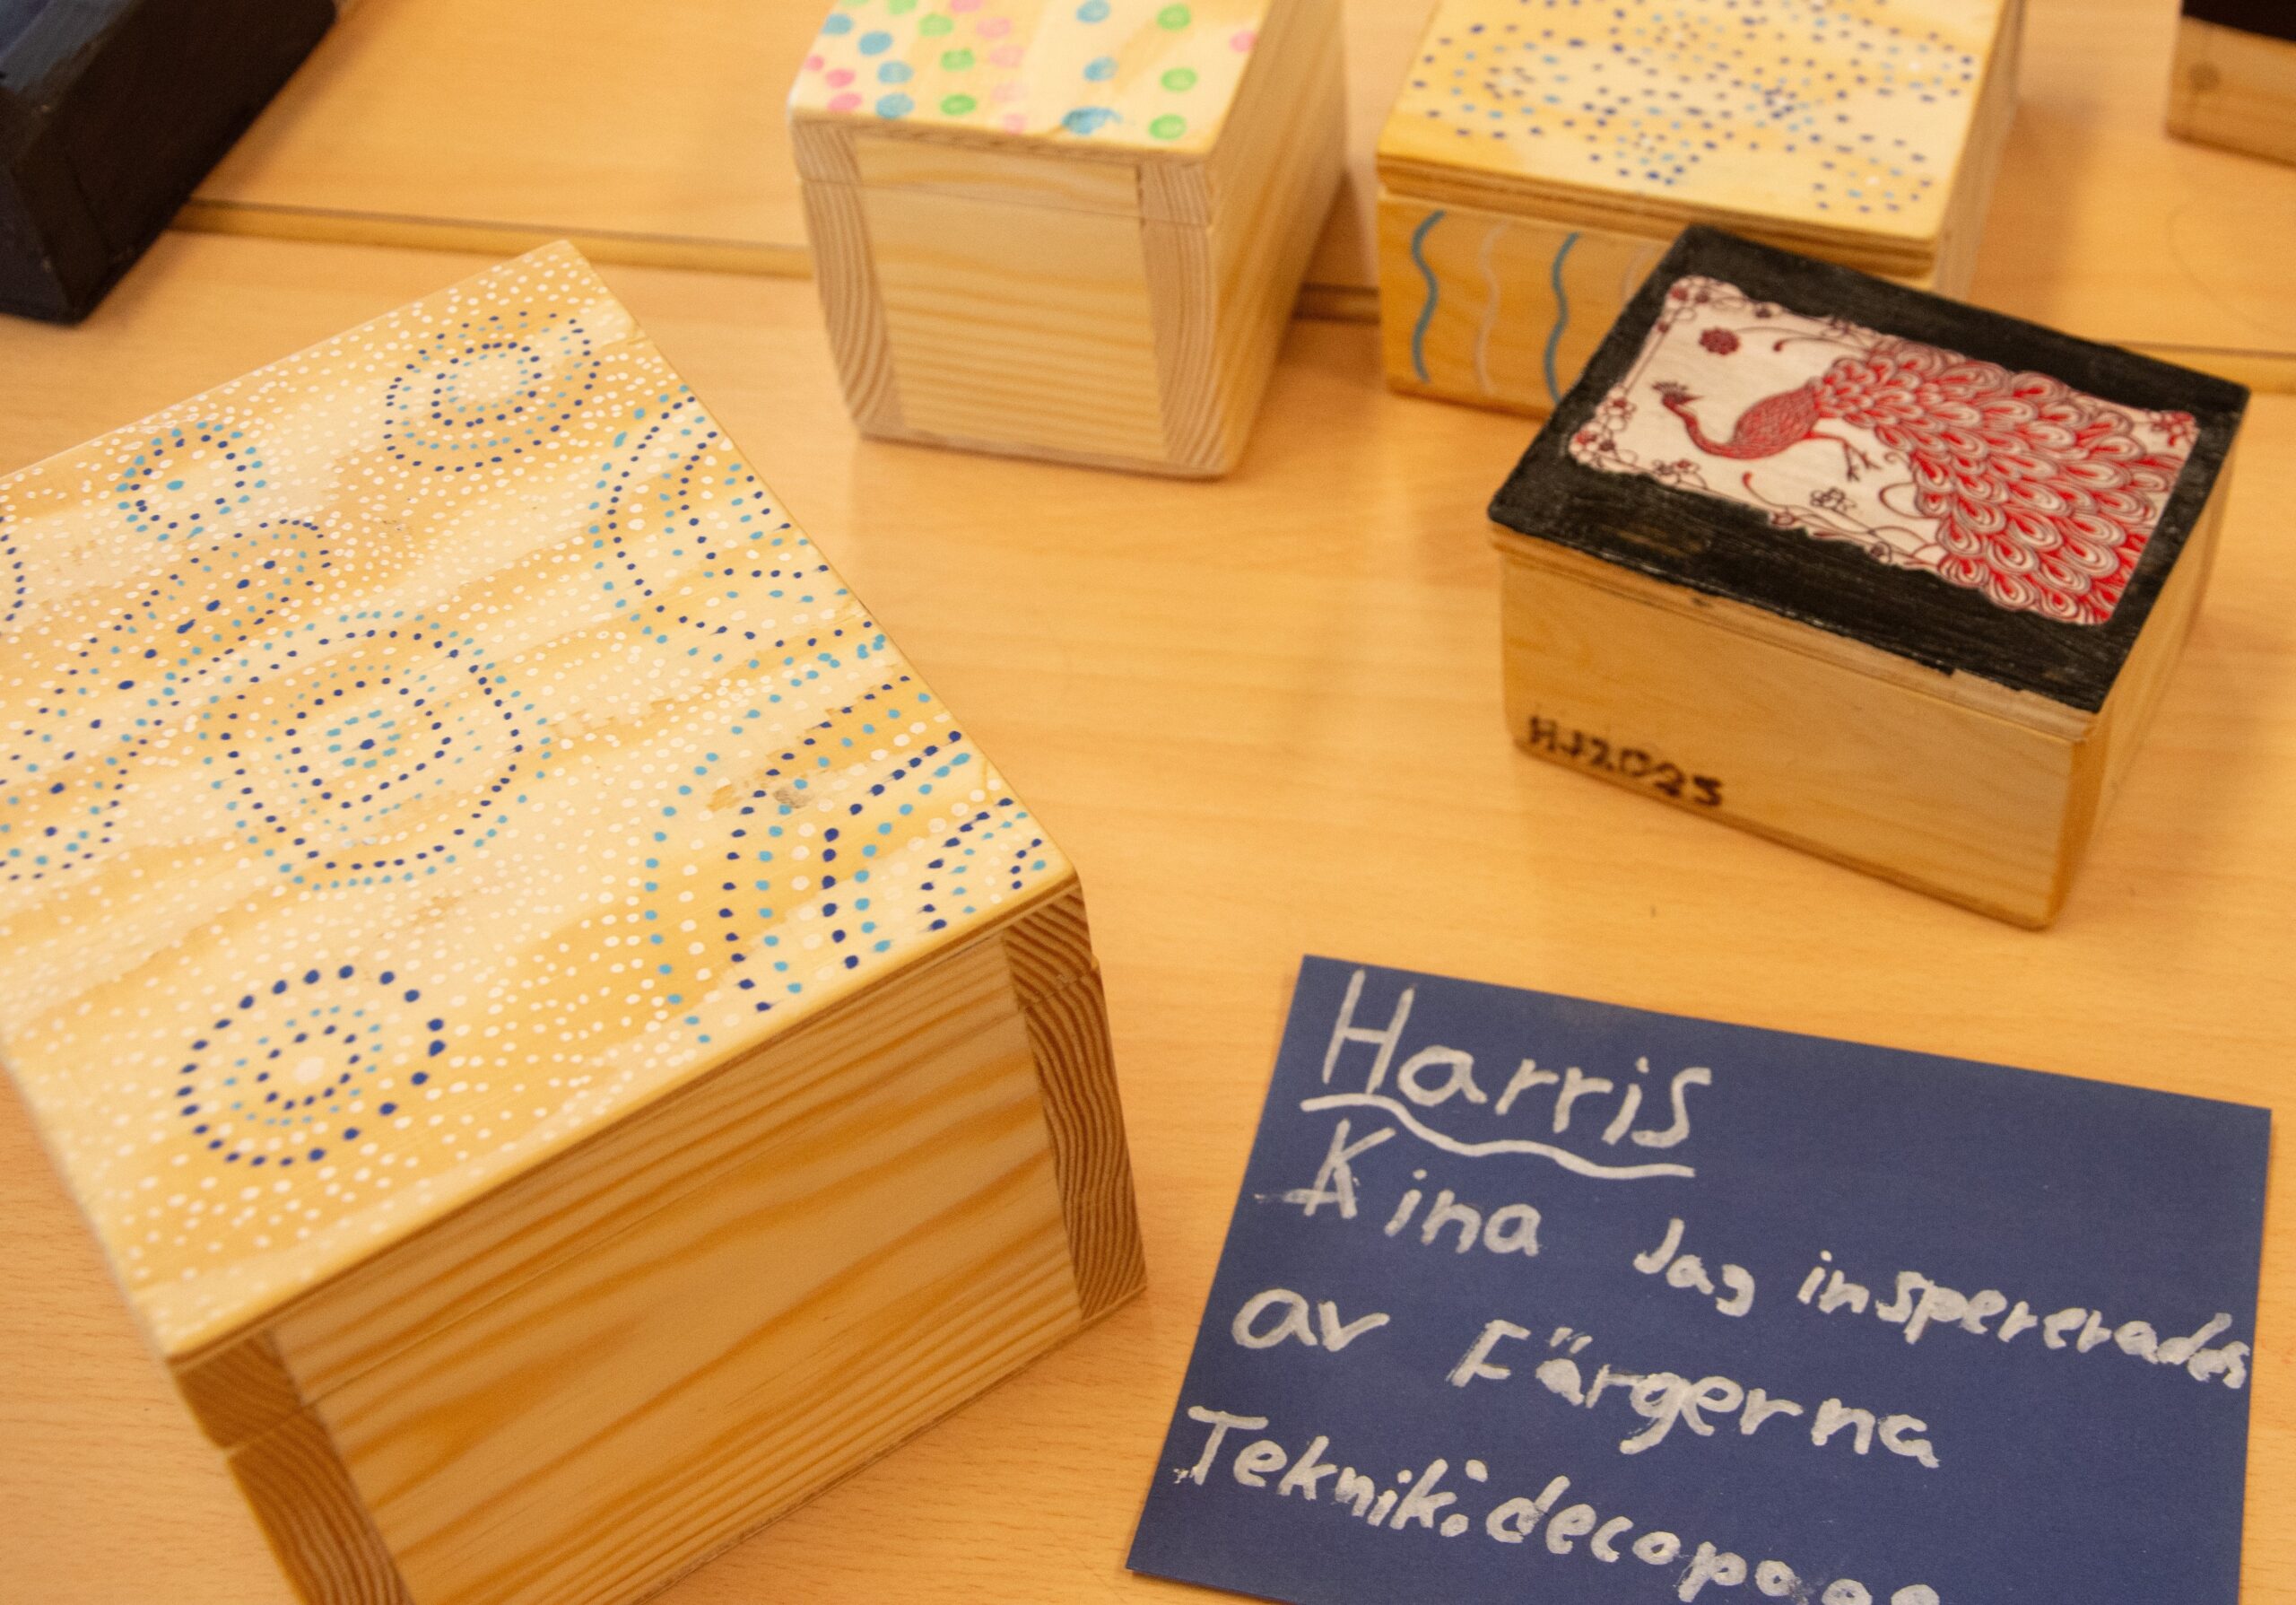 HJ2023
Harris
Kina Jag inspererades
av Färgerna
Teknik: decopage